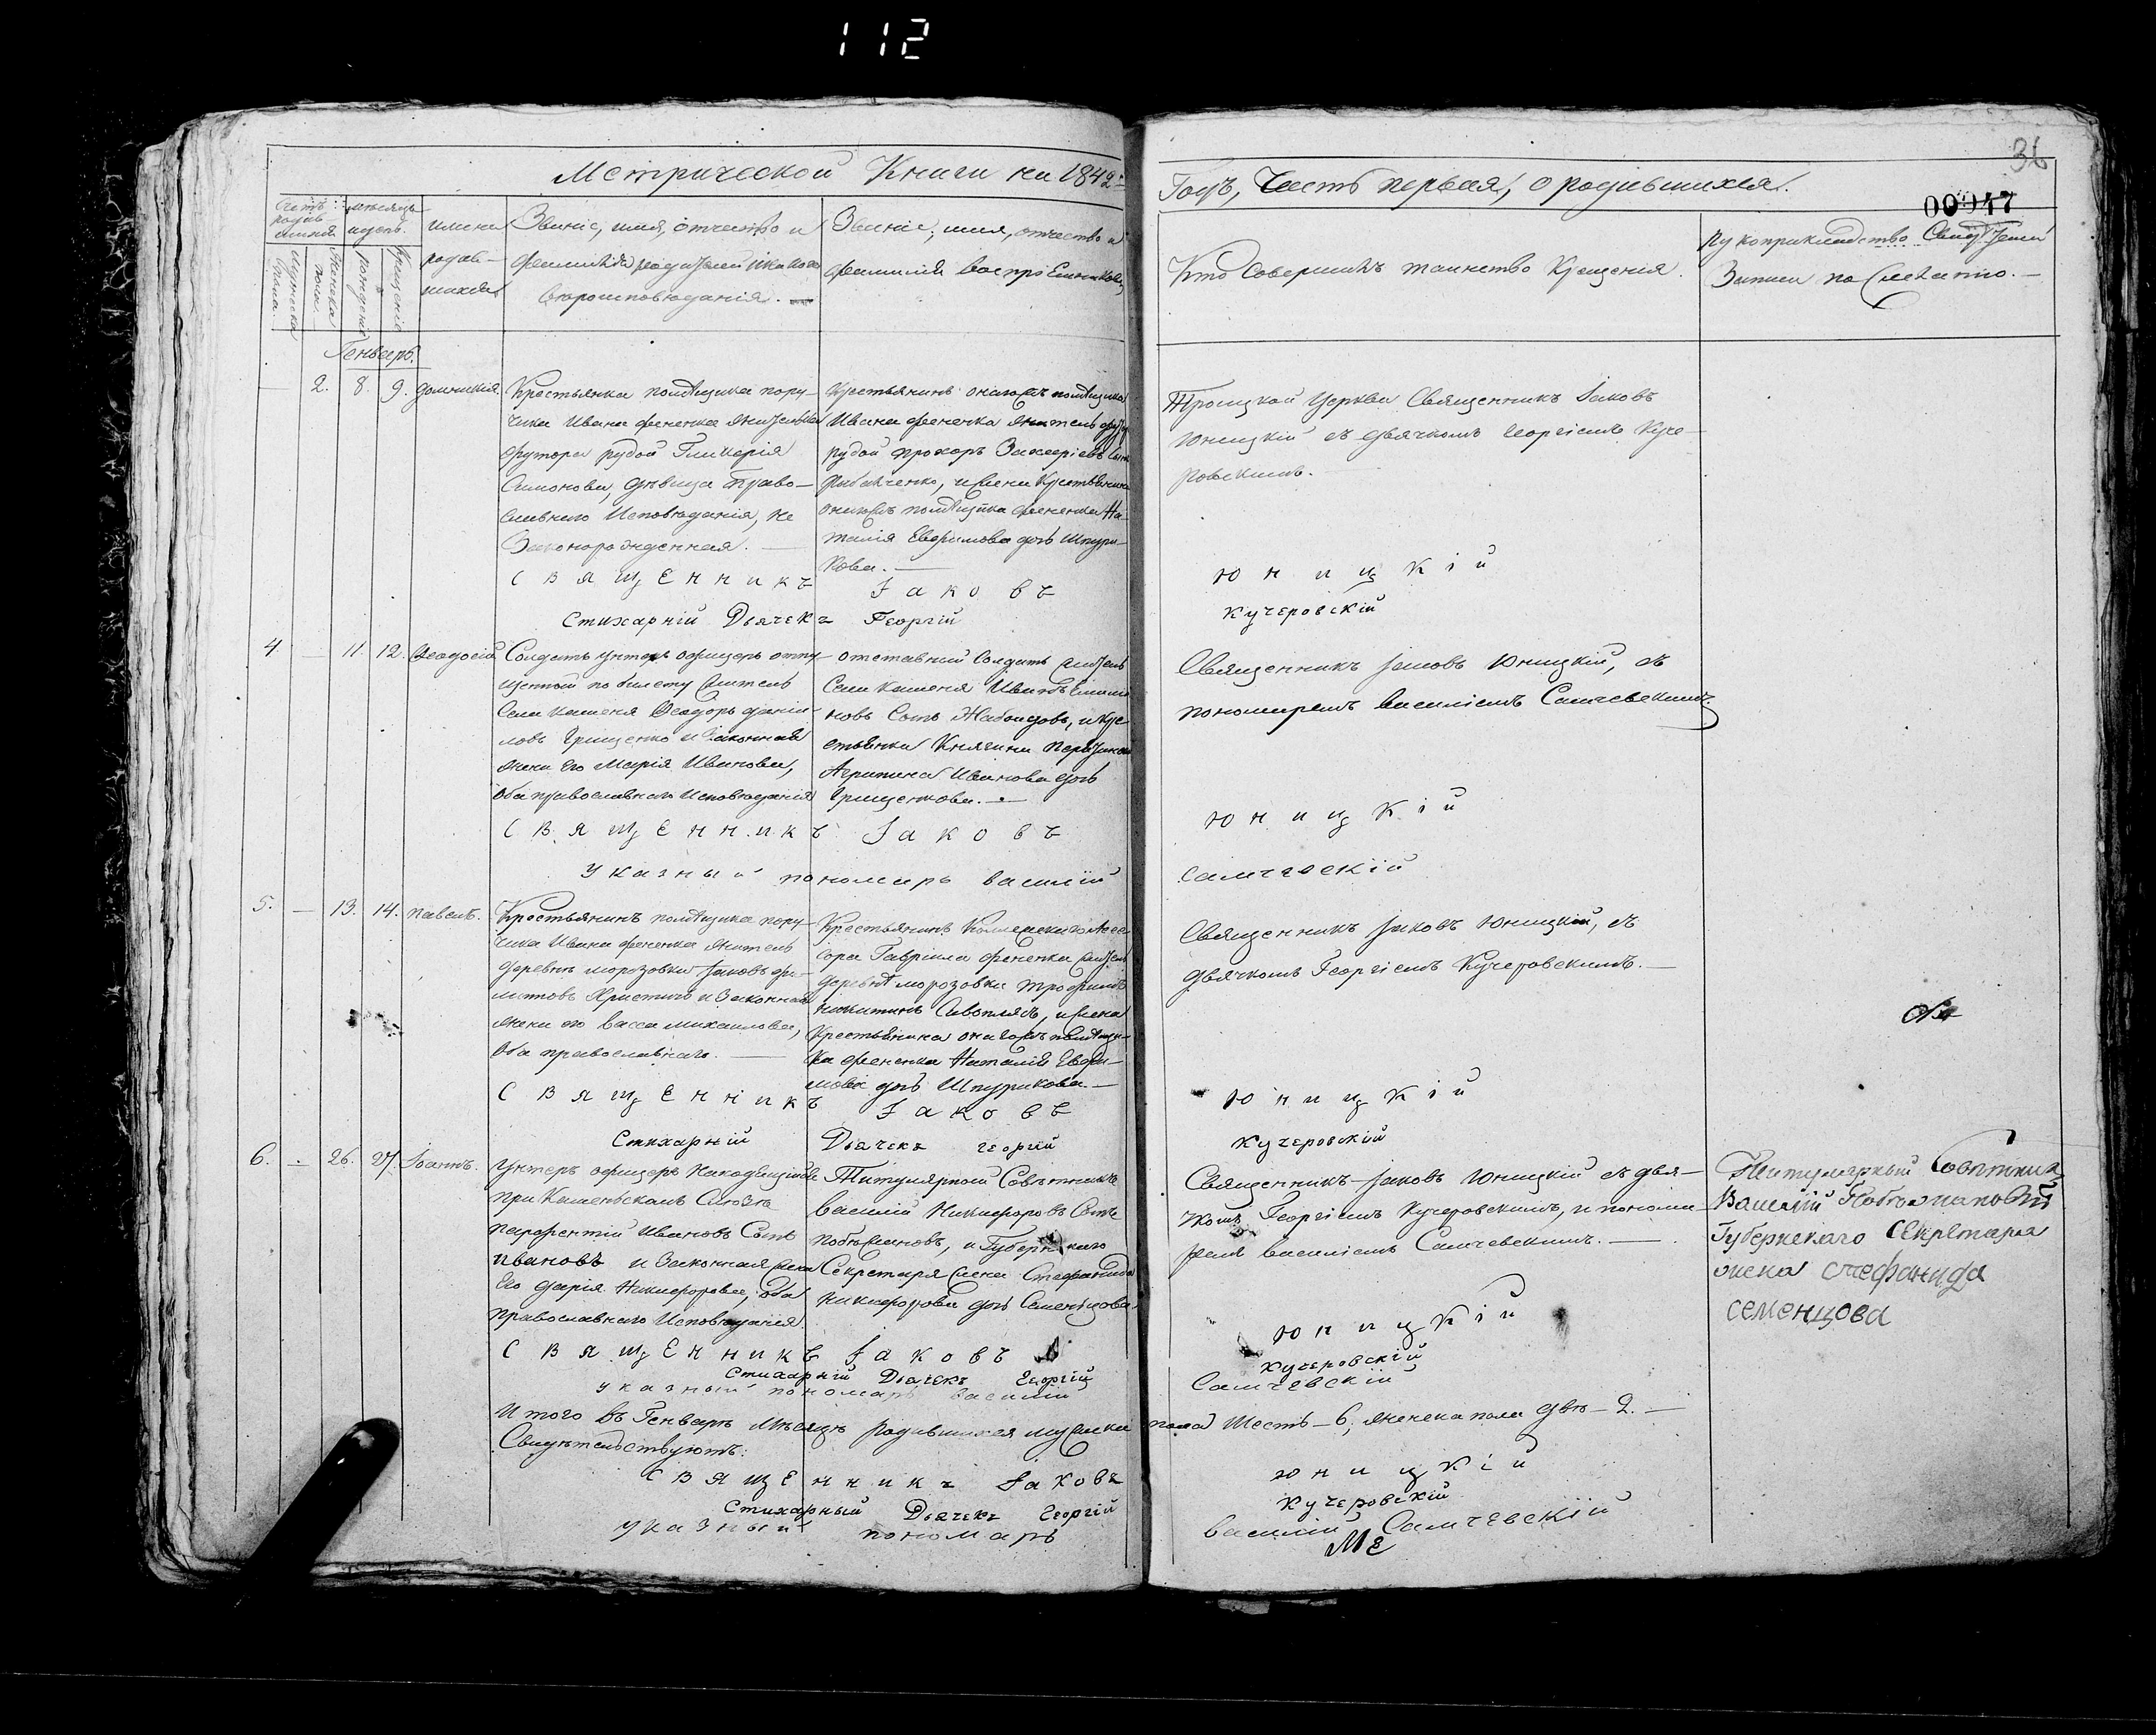 112
36
00947
Метрической Книги на 1842:
Годъ, Часть первая, о родившихся.
Счетъ родив-шихся.
Мужеска пола.
Женска пола.
месяцъ и день.
рожденія
Крещенія
имена родив-шихся
Званіе, имя, отчество и
фамилія родителей и какого
вероисповѣданія.
Званіе, имя, отчество и
фамилія воспріемниковъ
Кто Совершилъ таинство Крещенія.
рукоприкладство Свидѣтелей
Записи по Желанію.
Генваръ.
2. 8. 9. Домникія.
Крестьянка помѣщика пору-
чика Ивана фененка жителька
футора рудой Гликерія
Симонова, дѣвица Право-
славнаго Исповѣданія, не
Законорожденная.
Крестьянинъ онагожъ помѣщика
Ивана фененка житель футора
рудой Прохоръ Захаріевъ Сынъ
Рибалченко, и жена Крестьянина
онагожъ помѣщика фененка На-
талія Евфимова дочь Шпури-
кова.
Троицкой Церкви Священникъ Іаковъ
Юницкій съ дьячкомъ Георгіемъ Куче-
ровскимъ.
Священникъ Іаковъ Юницкій
Стихарній Дьячекъ Георгій Кучеровскій
4 — 11. 12. Феодосій
Солдатъ унтеръ офицеръ отпу-
щенной по билету житель
Села Каменя Феодоръ Даніи-
ловъ Грищенко и Законная
жена его Марія Иванова,
оба православнаго Исповѣданія
отставной Солдатъ житель
Села Каменя Иванъ
новъ Сынъ Жабоидовъ, и Кре-
стьянка Княгини
Агрипина Иванова дочь
Грищенкова.
Священникъ Іаковъ Юницкій, съ
пономаремъ Василіемъ Самчевскимъ.
Священникъ Іаковъ Юницкій
Указный пономарь Василій Самчевскій
5. — 13. 14. Павелъ.
Крестьянинъ помѣщика пору-
чика Ивана фененка житель
деревни морозовки Іаковъ фи-
липовъ Христичъ и Законная
жена его Васса Михаилова,
оба православнаго.
Крестьянинъ Колежскаго Асес-
сора Гавріила фененка житель
деревнѣ морозовки Трофимъ
Никитинъ , и жена
Крестьянина онагожъ помѣщи-
ка фененка Наталія Евфи-
мова дочь Шпурикова.
Священникъ Іаковъ Юницкій, съ
дьячкомъ Георгіемъ Кучеровскимъ.
Священникъ Іаковъ Юницкій
Стихарній Дьячекъ Георгій Кучеровскій
6. — 26. 27. Іоаннъ.
Унтеръ офицеръ находящійся
при Каменьскомъ
Парфентій Ивановъ Сынъ
Ивановъ и Законная жена
Его Дарія Никифорова, оба
православнаго Исповѣданія.
Титулярной Совѣтникъ
Василій Никифоровъ Сынъ
, и Губернскаго
Секретаря жена Стефанида
Никифорова дочь Семенцова.
Священникъ Іаковъ Юницкій съ дья-
чкомъ Георгіемъ Кучеровскимъ, и понома-
ремъ Василіемъ Самчевскимъ.
Титулярный Совѣтникъ
Василій
Губернскаго Секретаря
жена Стефанида
Семенцова
Священникъ Іаковъ Юницкій
Стихарній Дьячекъ Георгій Кучеровскій
Указный пономарь Василій Самчевскій
Итого въ Генварѣ мѣсяцѣ родившихся мужеска пола Шесть – 6, женска пола двѣ – 2.
Свидѣтельствуютъ:
Священникъ Іаковъ Юницкій
Стихарный Дьячекъ Георгій Кучеровскій
Указный пономарь Василій Самчевскій